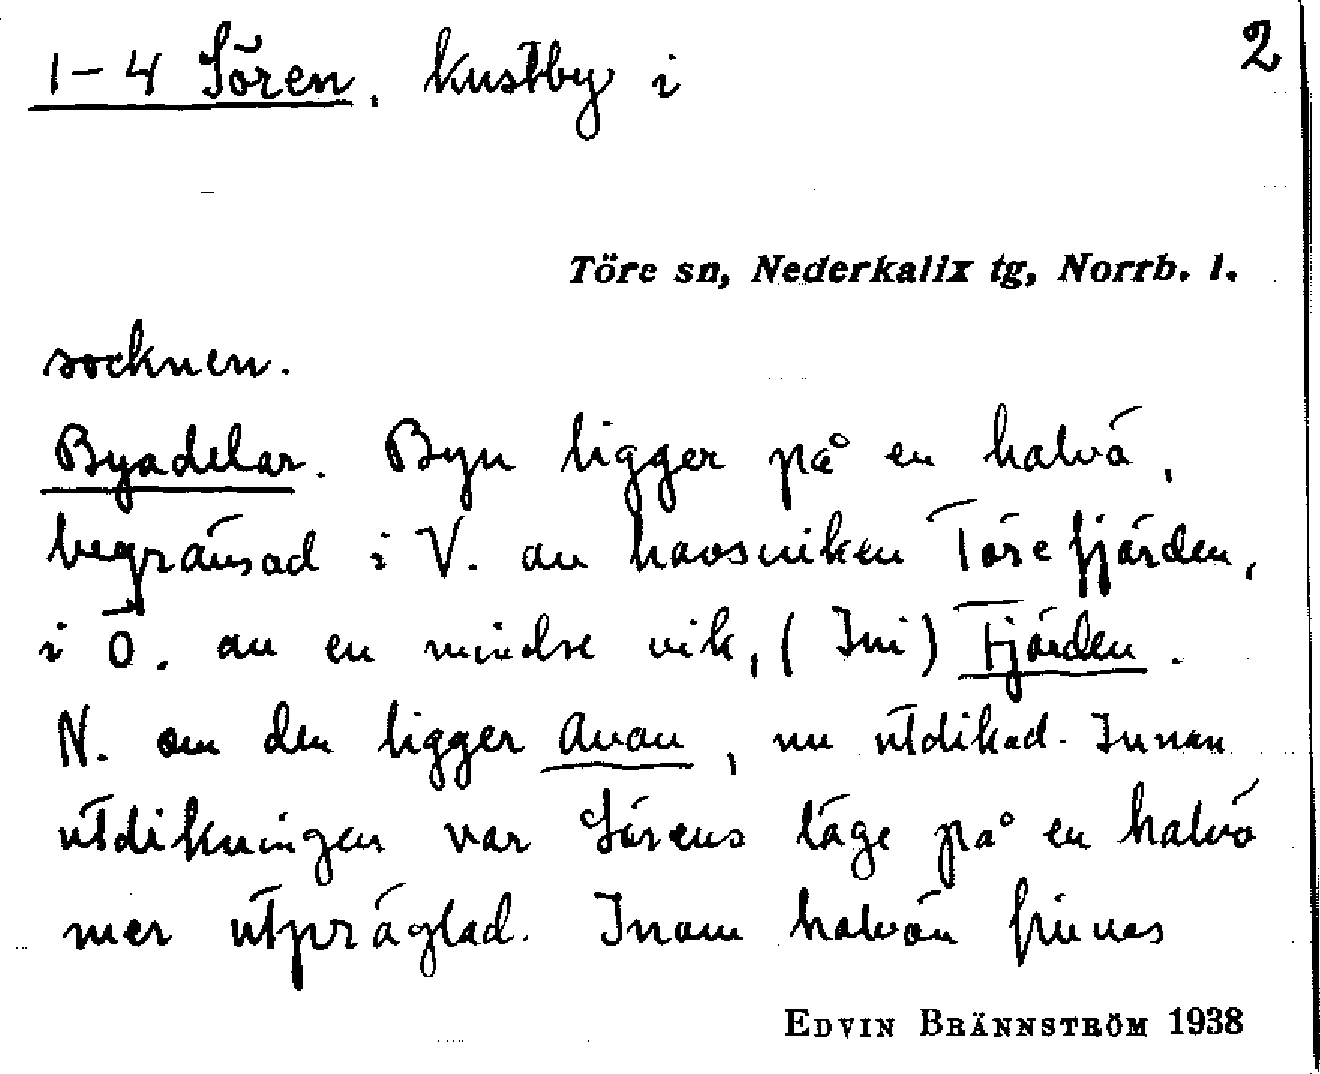 1-4 Sören, kustby i
2
Töre sn, Nederkalix tg, Norrb. l.
socknen.
Byadelar. Byn ligger på en halvö,
begränsad i V. av havsviken Törefjärden,
i Ö. av en mindre vik, (Ini) Fjärden.
N. om den ligger Avan, nu utdikad. Innan
utdikningen var Sörens läge på en halvö
mer utpräglad. Inom halvön finnas
EDVIN BRÄNNSTRÖM 1938